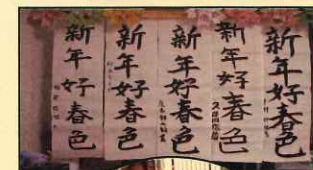 新年好春色
新年好春色
新年好春色
新年好春色
新年好春色